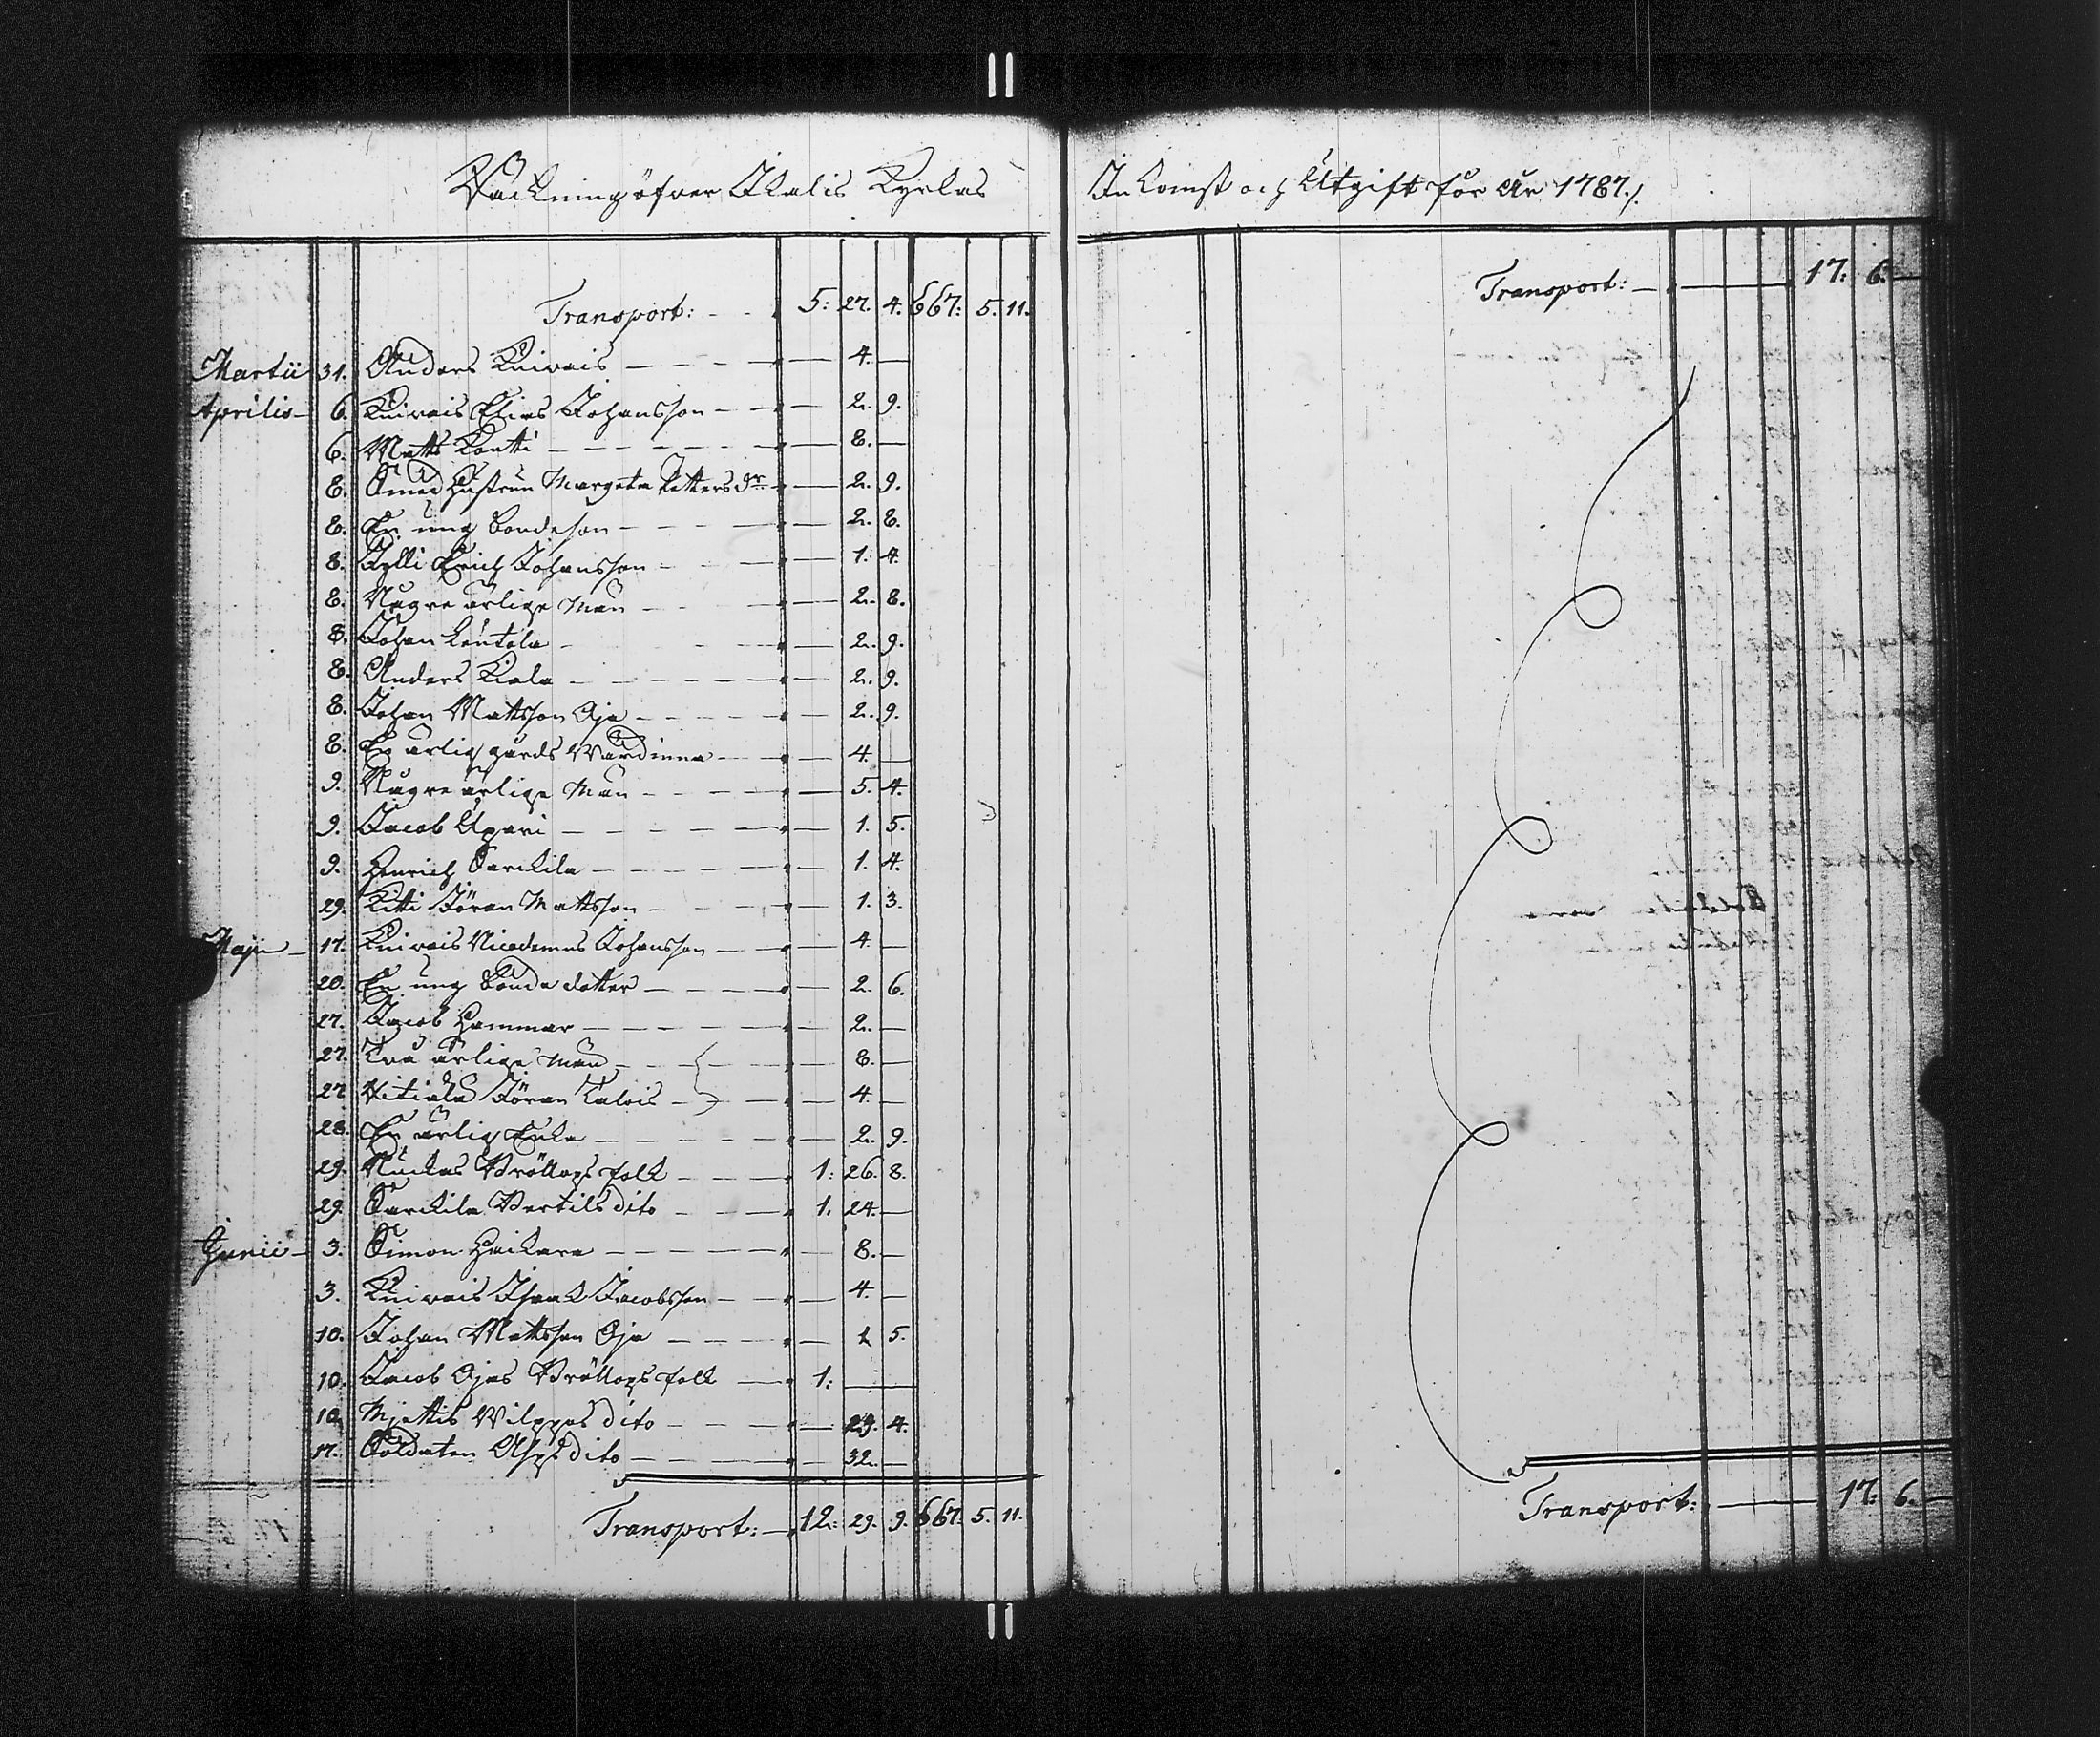 Räckning öfver Ikalis Kyrkas
Transport: 5: 27. 4. 667: 5. 11.
Martii 31. Anders Knivais — 4. —
Aprilis 6. Knivais Elias Johansson — 2. 9.
6. Matts Kontti — 8. —
8. Hustrun Margeta Pettersdr — 2. 9.
8. En ung bondeson — 2. 8.
8. Kylli Erich Johansson — 1. 4.
8. Någre ärlige Män — 2. 8.
8. Johan Leutola — 2. 9.
8. Anders Kiala — 2. 9.
8. Johan Mattsson Oja — 2. 9.
8. En ärlig gårds Wärdinna — 4. —
9. Någre ärlige Män — 5. 4.
9. Jacob Upari — 1. 5.
9. Henrich Sarckila — 1. 4.
29. Kitti Jöran Mattsson — 1. 3.
Maji 17. Knivais Nicodemus Johansson — 4. —
20. En ung bonde dotter — 2. 6.
27. Jacob Hammar — 2. —
27. Två ärlige Män — 8. —
27 Jöran — 4. —
28. En ärlig Enka — 2. 9.
29. Bröllops folk 1: 26. 8.
29. Sarckila Bertils dito 1. 24. —
Junii 3. Simon Heikara — 8. —
3. Knivais Isaak Jacobsson — 4. —
10. Johan Mattsson Oja — 1 5.
10. Jacob Ojas Bröllops folk 1: — —
10. Mjettis Wilppas dito — 29. 4.
17. Soldaten Asps dito — 32. —
Transport: 12: 29. 9. 667: 5. 11.
Inkomst och Utgift för år 1787./.
Transport: — 17: 6. —
Transport: — 17: 6. —